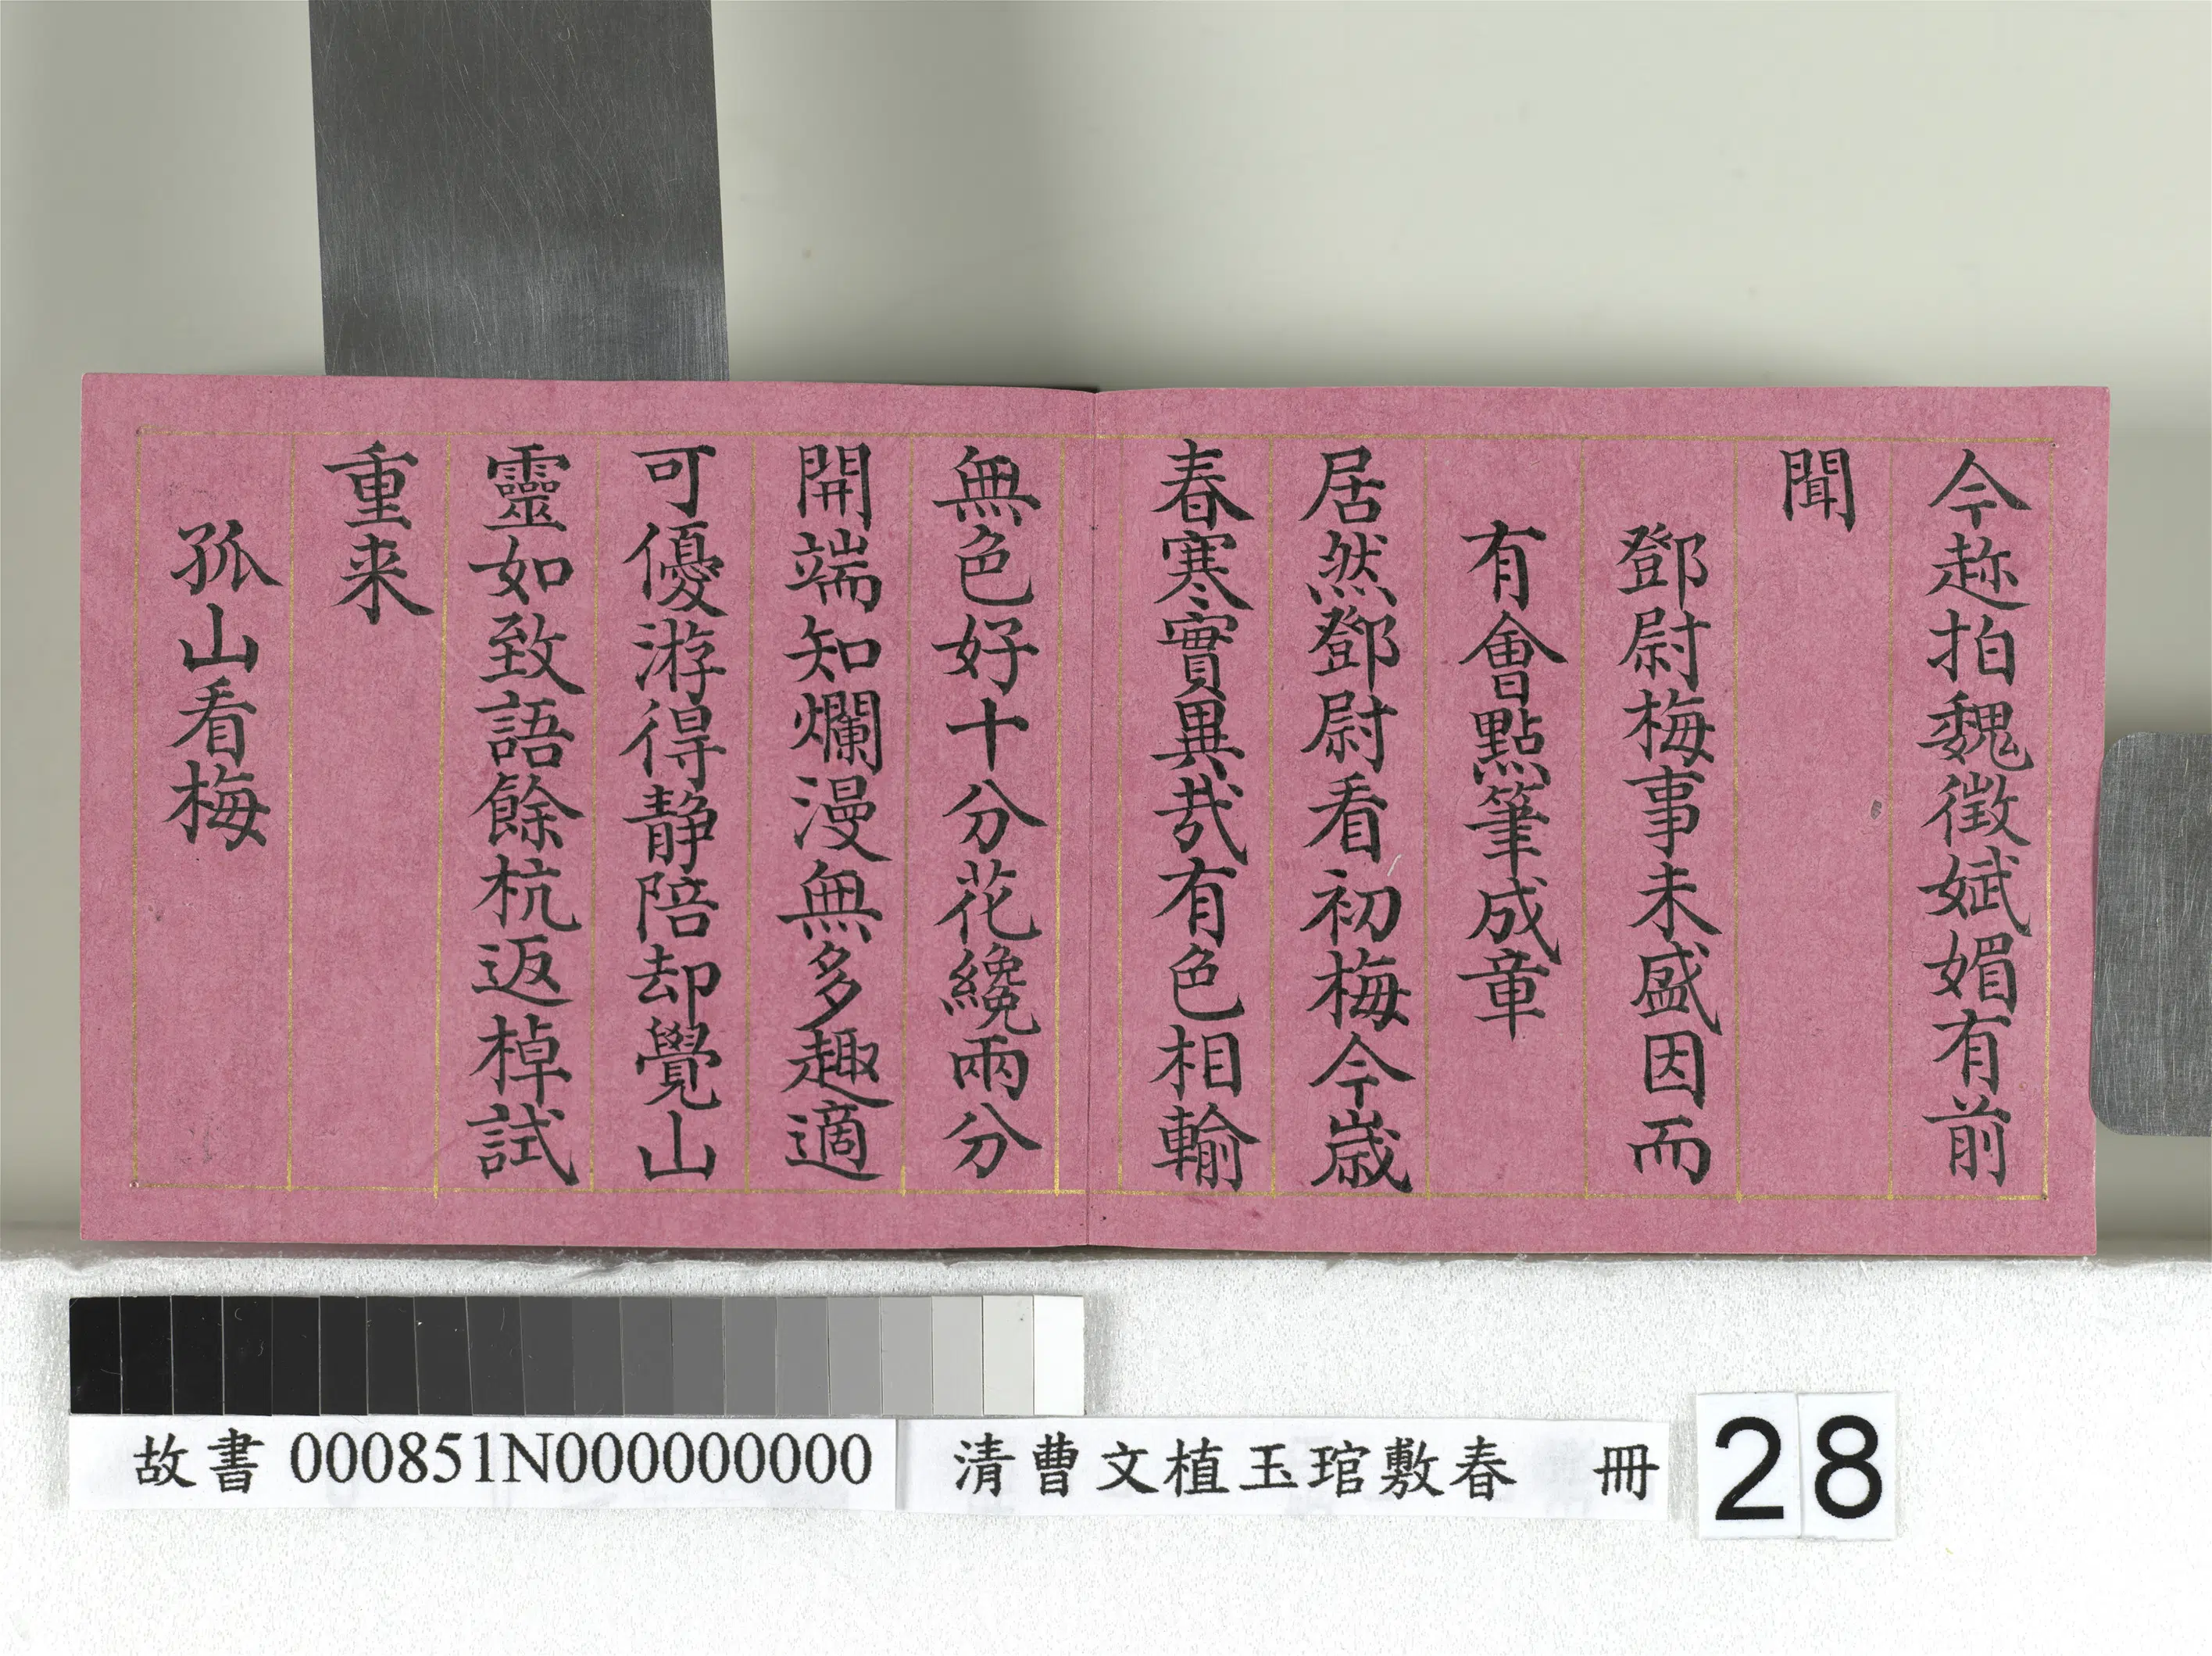 今趂拍魏徵娬媚有前
聞
鄧尉梅事未盛因而
有會㸃筆成章
居然鄧尉看初梅今歲
春寒實異哉有色相輸
無色好十分花纔兩分
開端知爛漫無多趣適
可優游得静陪却覺山
靈如致語餘杭返棹試
重来
孤山看梅
故書 000851N000000000
清曹文植玉琯敷春 冊
28